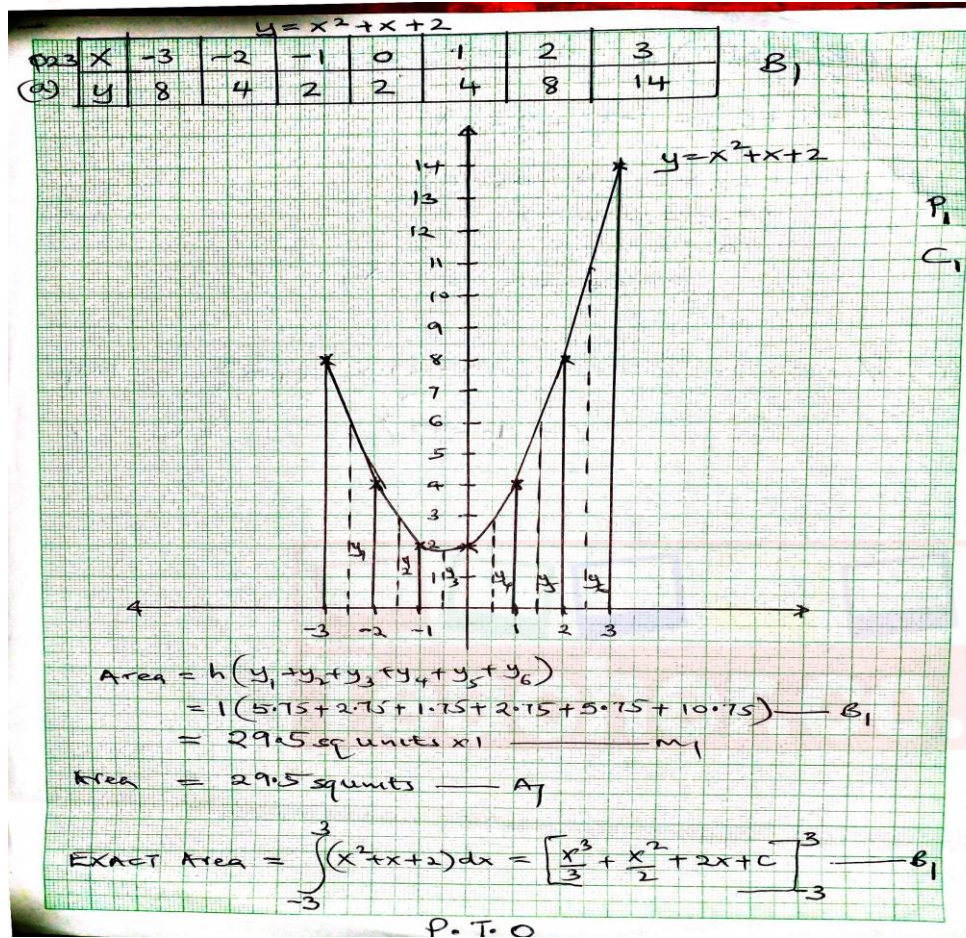 y = x² + x + 2
023 X -3 -2 -1 0 1 2 3 B₁
(a) y 8 4 2 2 4 8 14
y = x² + x + 2
14
13
12
11
10
9
8
7
6
5
4
3
2
1
P₁
C₁
y₁ y₂ y₃ y₄ y₅ y₆
-3 -2 -1 1 2 3
Area = h(y₁ + y₂ + y₃ + y₄ + y₅ + y₆)
= 1(5.75 + 2.75 + 1.75 + 2.75 + 5.75 + 10.75) — B₁
= 29.5 sq units × 1 — M₁
Area = 29.5 sq units — A₁
EXACT Area = ∫₋₃³ (x² + x + 2) dx = [x³/3 + x²/2 + 2x + C]₋₃³ — B₁
P.T.O